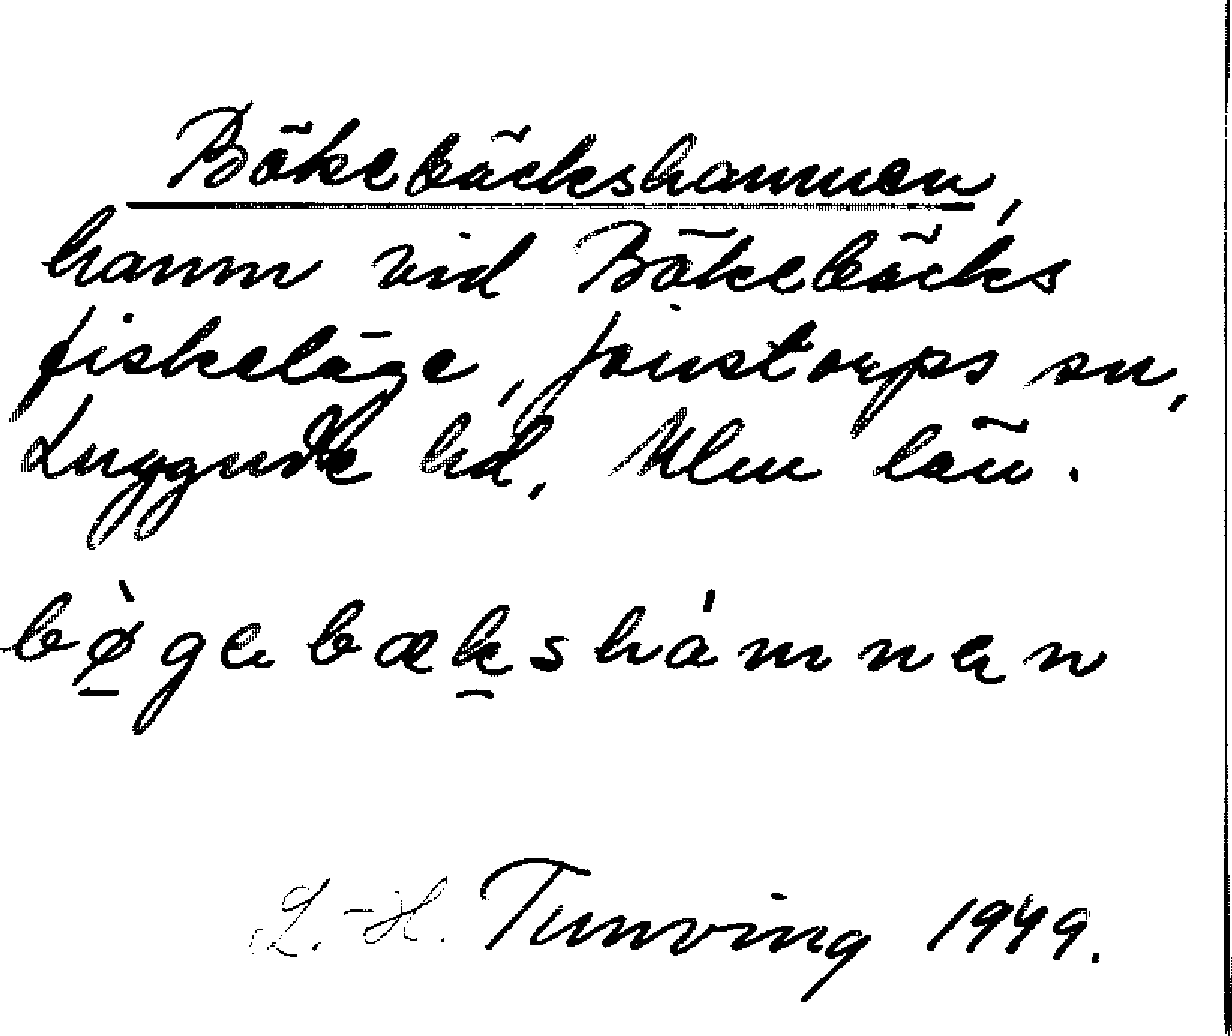 Bökebäckshamnen,
hamn vid Bökebäcks
fiskeläge, Jonstorps sn,
Luggude hd, Mlm län.
bø̀gebækshámnen
L.-H. Tunving 1949.